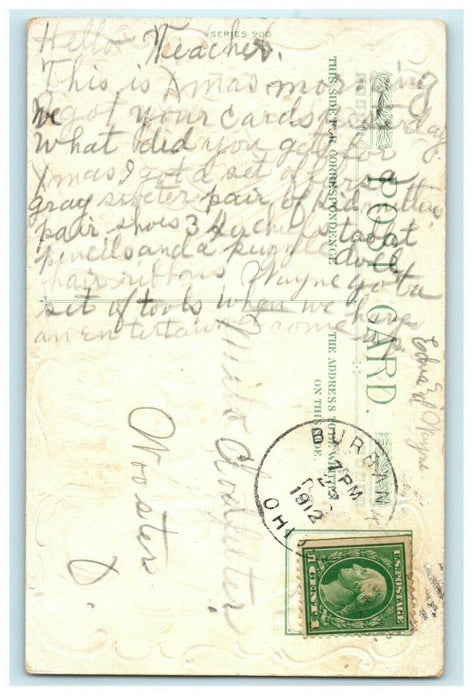 SERIES 900
Hello Teacher.
This is Xmas morning
I got your cards yesterday
We
What did you get for
Xmas I got a set of furs a
gray sweter pair of kid mittens
pair shoes 3 a
pencils and a puzzle doll
hair ribbons Wayne got a
set of tools When we have
an entertain come up
Edna & Wayne
THIS SIDE FOR CORRESPONDENCE
POST CARD.
THE ADDRESS TO BE WRITTEN
ON THIS SIDE.
Miss
Wooster
O.
BURBANK
1 PM
1912
OHIO
U.S. POSTAGE
1 CENT 1